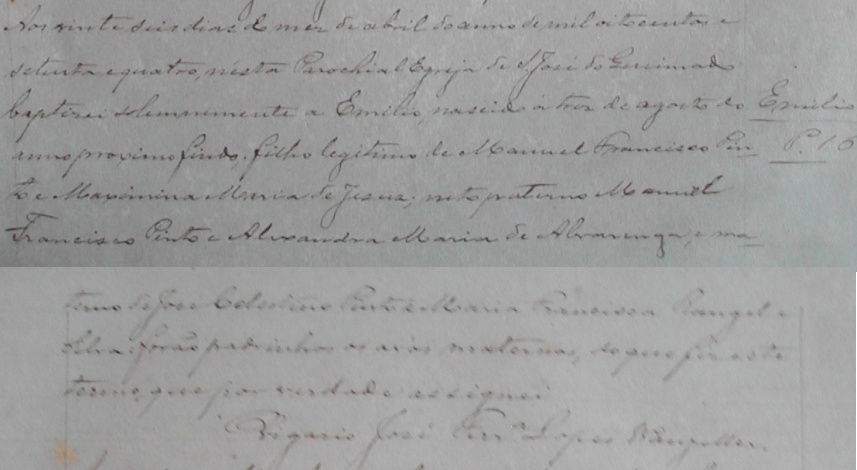 Aos vinte seis dias do mez de abril do anno de mil oitocentos e
setenta e quatro, nesta Parochial Egreja de S. José do
baptizei solemnemente a Emilio, nascido a trez de agosto do
Emilio
anno proximo findo, filho legitimo de Manuel Francisco Pin
P. 16
to e Maximina Maria de Jesus; neto paterno Manuel
Francisco Pinto e Alexandra Maria de Alvarenga, e ma
terno de José Celestino Pinto e Maria Francisca Rangel e
Silva: forão padrinhos os avós maternos, do que fiz este
termo, que por verdade assignei
Vigario José Lopes